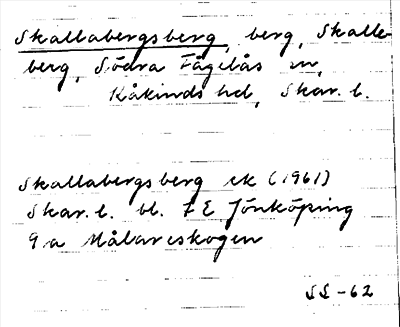 Skallabergsberg, berg, Skalle-
berg, Södra Fågelås sn,
Kåkinds hd, Skar. l.
Skallabergsberg ek (1961)
Skar. l. bl. 7 E Jönköping
9 a Målareskogen
SL-62